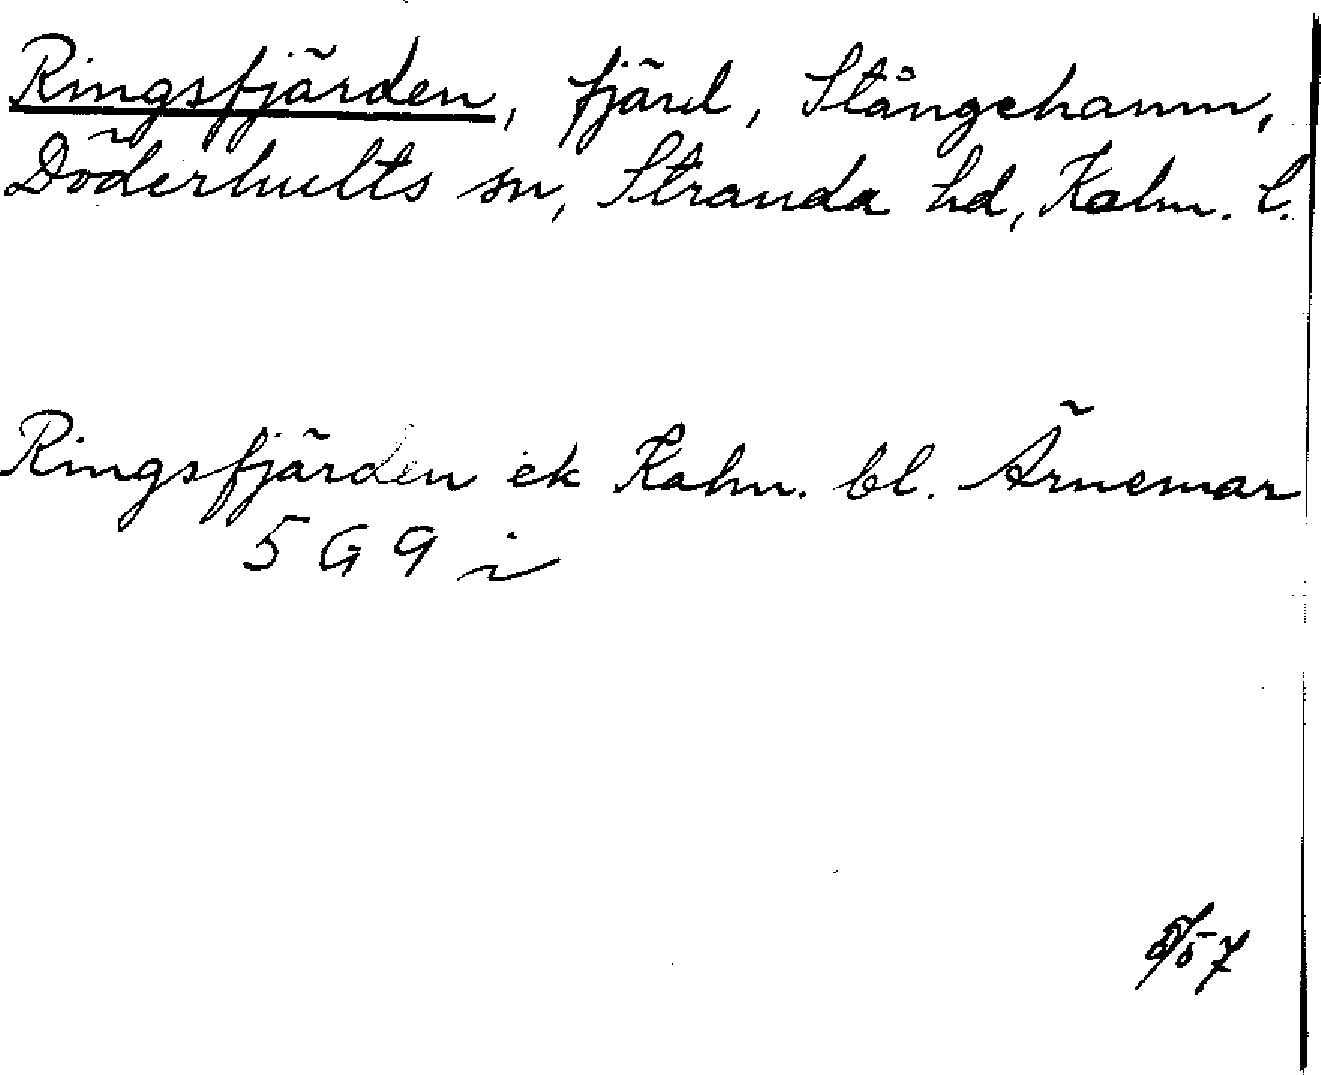 Ringsfjärden, fjärd, Stångehamn,
Döderhults sn, Stranda hd, Kalm. l.
Ringsfjärden ek Kalm. bl. Ärnemar
5 G 9 i